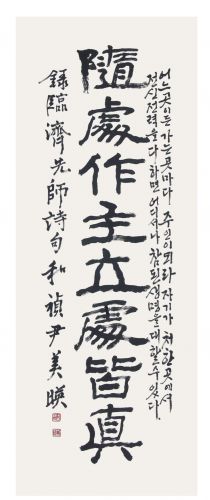 隨處作主立處皆真
어느곳이든 가는곳마다 주인이 되라 자기가 처한곳에서
전신전력을 다하면 어디서나 참된 생명을 대할 수 있다.
錄臨濟先師詩句 和禎 尹美暎